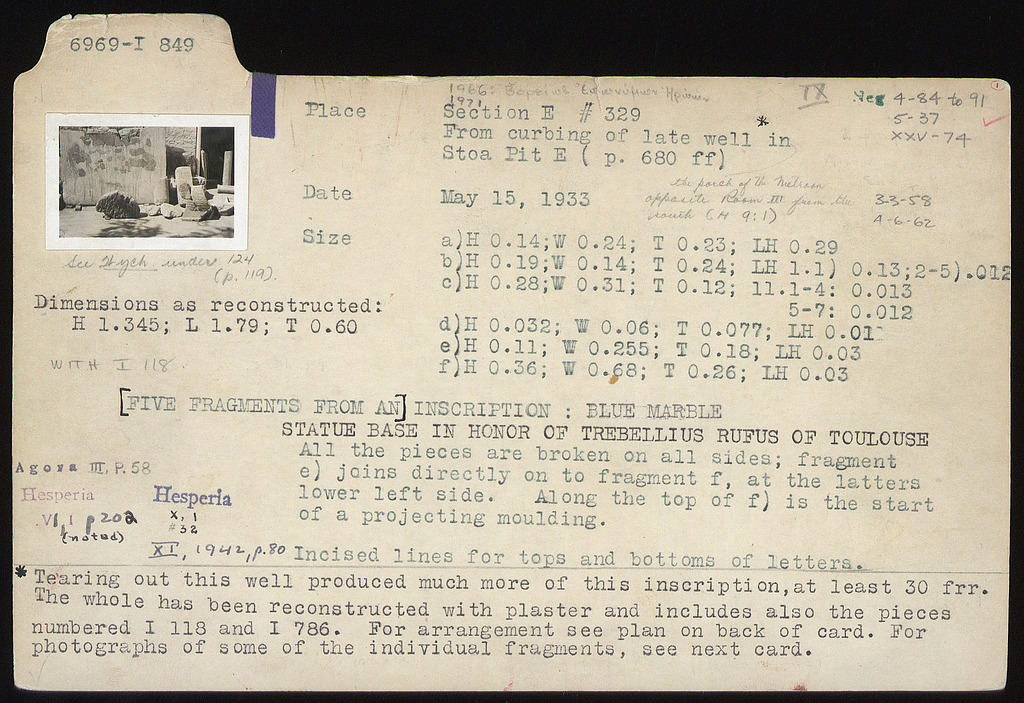 6969-I 849
1966:
1971
IX
Neg 4-84 to 91
5-37
XXV-74
Place Section E # 329 *
From curbing of late well in
Stoa Pit E ( p. 680 ff)
the porch of the Metroon
opposite Room III from the
south (H 9:1)
3-3-58
4-6-62
Date May 15, 1933
Size a)H 0.14;W 0.24; T 0.23; LH 0.29
b)H 0.19;W 0.14; T 0.24; LH 1.1) 0.13;2-5).012
c)H 0.28;W 0.31; T 0.12; 11.1-4: 0.013
5-7: 0.012
d)H 0.032; W 0.06; T 0.077; LH 0.01
e)H 0.11; W 0.255; T 0.18; LH 0.03
f)H 0.36; W 0.68; T 0.26; LH 0.03
See Hych. under 124
(p. 119).
Dimensions as reconstructed:
H 1.345; L 1.79; T 0.60
WITH I 118.
[FIVE FRAGMENTS FROM AN] INSCRIPTION : BLUE MARBLE
STATUE BASE IN HONOR OF TREBELLIUS RUFUS OF TOULOUSE
All the pieces are broken on all sides; fragment
e) joins directly on to fragment f, at the latters
lower left side. Along the top of f) is the start
of a projecting moulding.
Incised lines for tops and bottoms of letters.
Agora III, P. 58
Hesperia
p 202
(noted)
Hesperia
X, 1
#32
XI, 1942, p. 80
* Tearing out this well produced much more of this inscription,at least 30 frr.
The whole has been reconstructed with plaster and includes also the pieces
numbered I 118 and I 786. For arrangement see plan on back of card. For
photographs of some of the individual fragments, see next card.